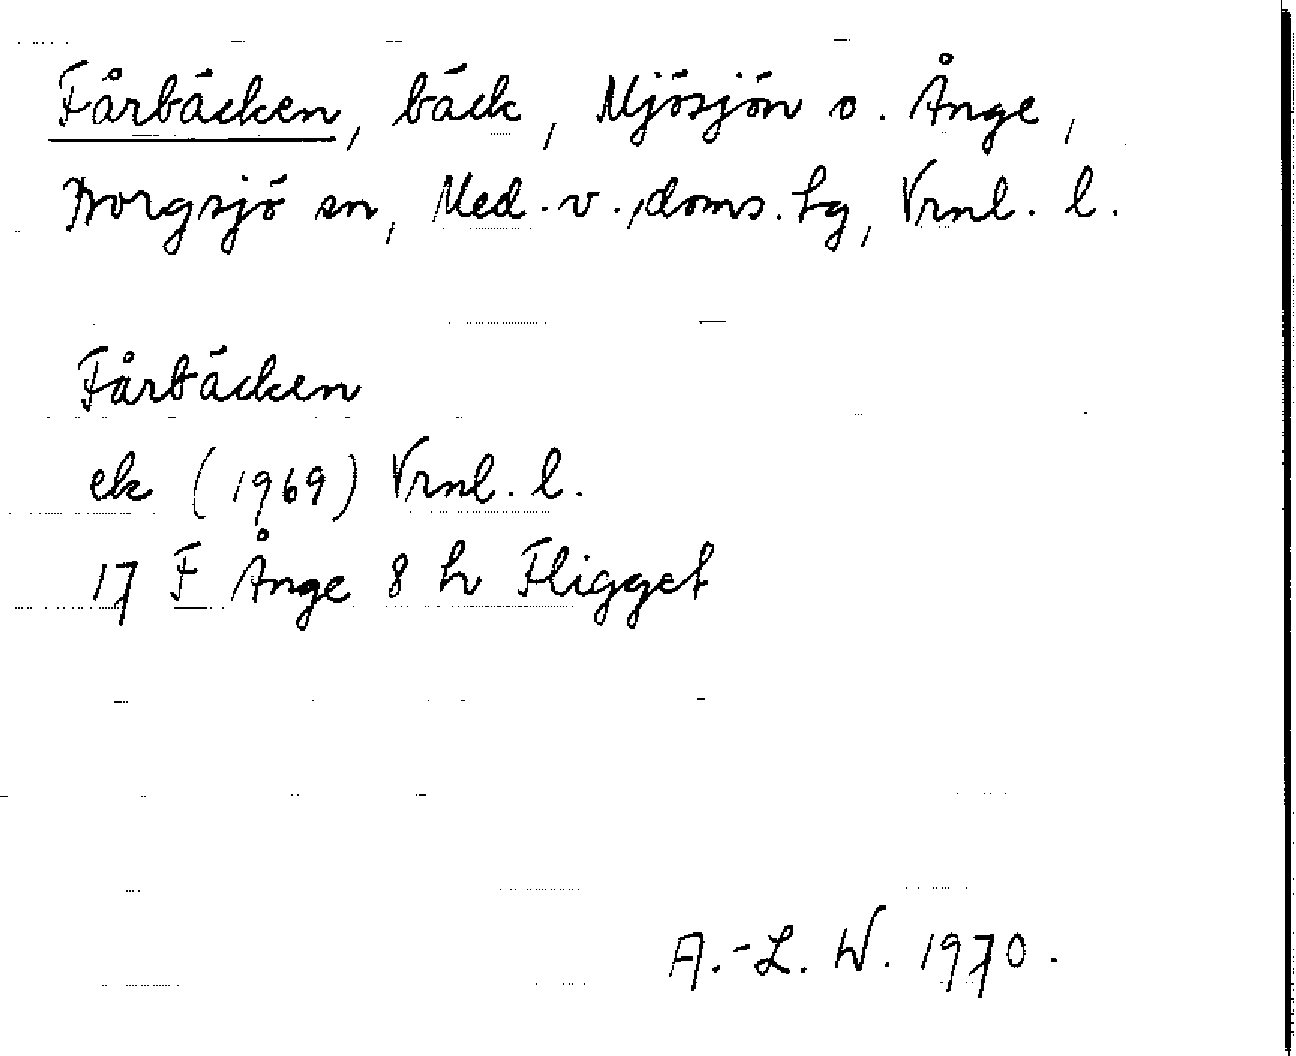 Fårbäcken, bäck, Mjösjön o. Ånge,
Borgsjö sn, Med. v., doms. hg, Vrnl. l.
Fårbäcken
ek (1969) Vrnl. l.
17 F Ånge 8 h Fligget
A.-L. W. 1970.